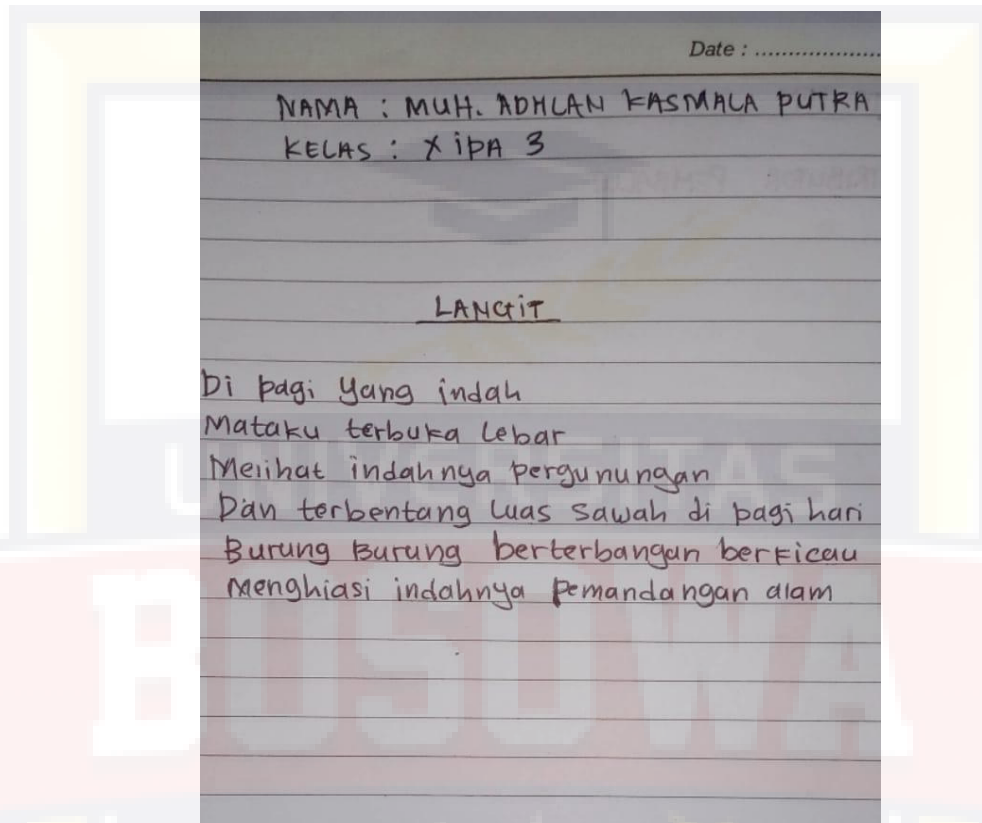 Date : ....................
NAMA : MUH. ADHLAN KASMALA PUTRA
KELAS : X IPA 3
LANGIT
Di pagi yang indah
Mataku terbuka lebar
Melihat indahnya pergunungan
Dan terbentang luas sawah di pagi hari
Burung Burung berterbangan berkicau
Menghiasi indahnya pemandangan alam
UNIVERSITAS
BOSOWA